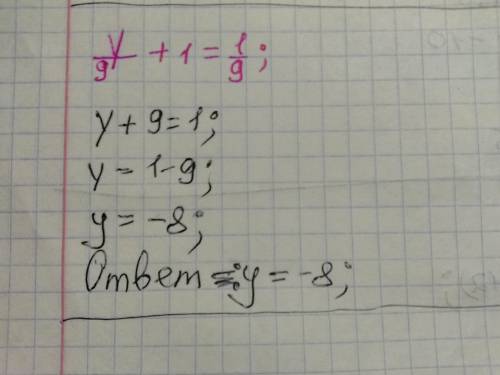 y/9 + 1 = 1/9;
y + 9 = 1;
y = 1 - 9;
y = -8;
Ответ: y = -8;